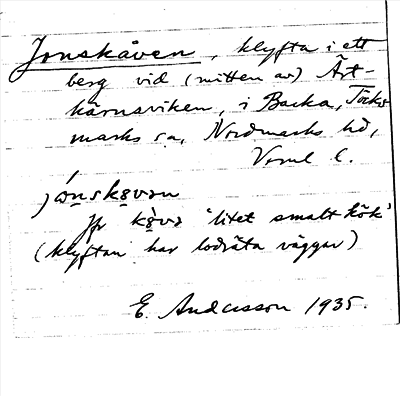 Jonskåven, klyfta i ett
berg vid (mitten av) Ärt-
kärnsviken, i Backa, Töcks
marks sn, Nordmarks hd,
Verml l.
jfr kåva 'litet smalt kök'
(klyftan har lodräta väggar)
E. Andersson 1935.